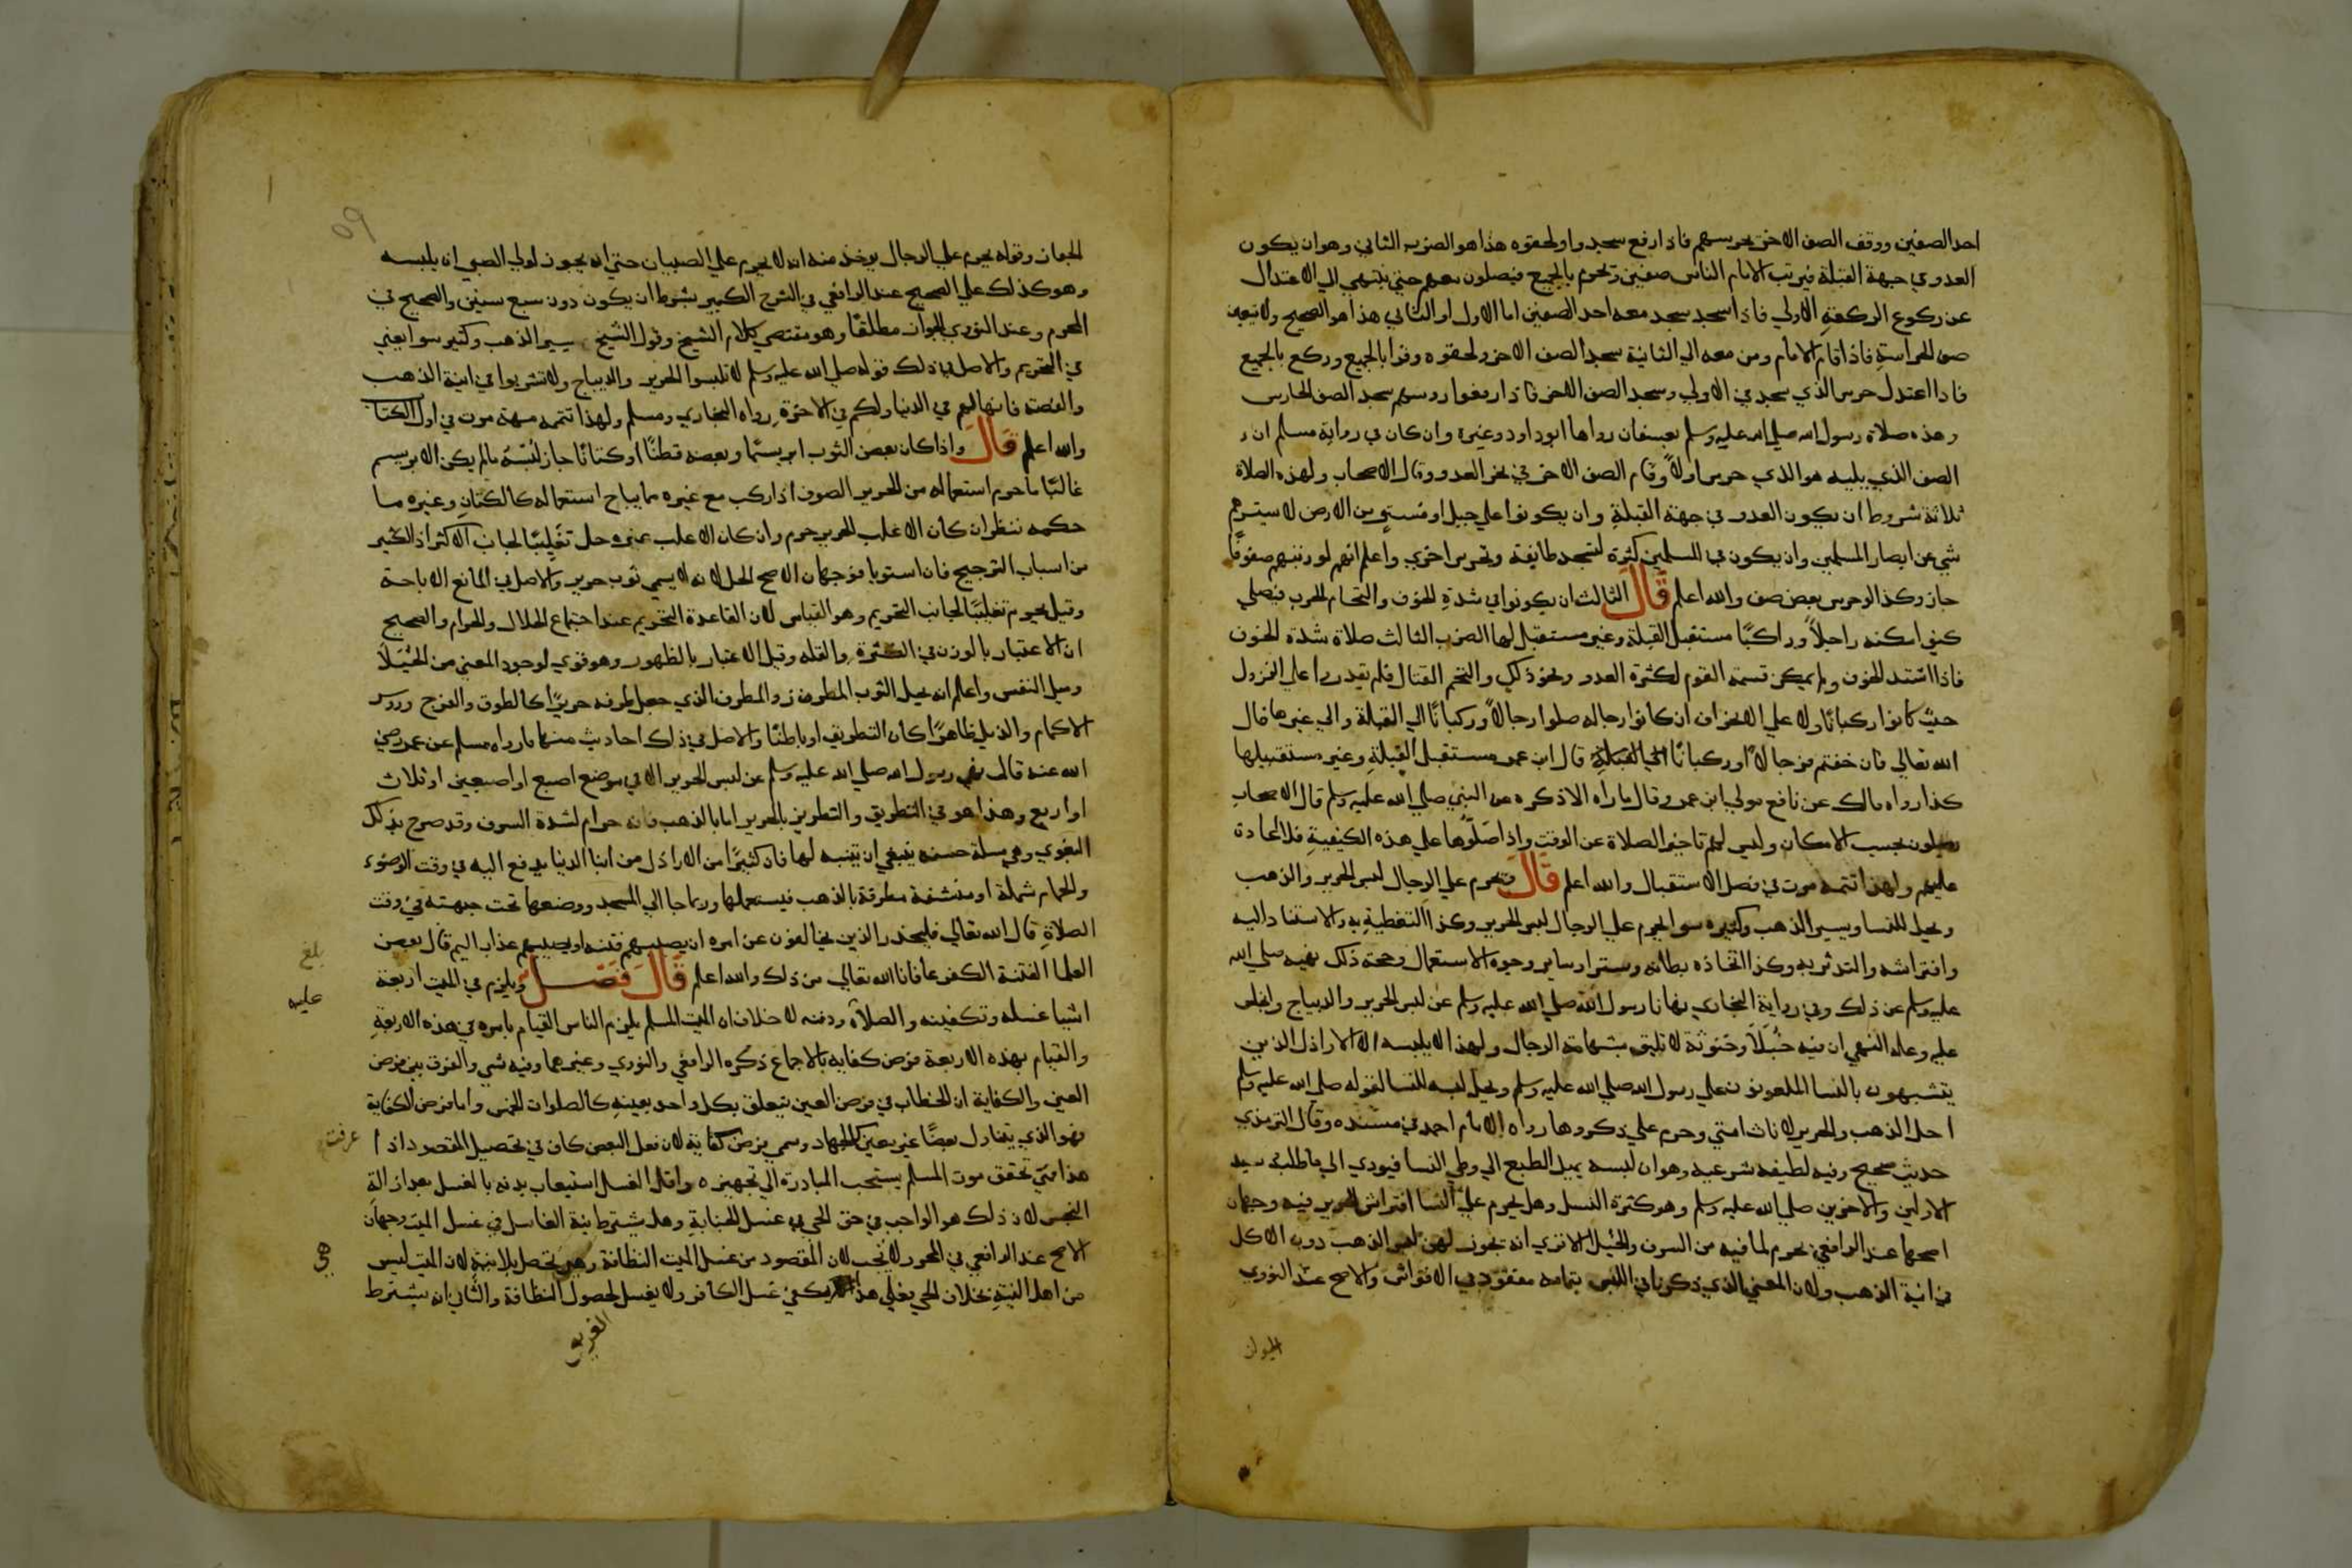 احد الصفين ووقف الصف الاخر يحرسهم فاذا رفع سجدوا ولحقوه هذا هو الضرب الثاني وهو ان يكون
العدو في جهة القبلة فيرتب الامام الناس صفين ويحرم بالجميع فيصلون معهم حتي ينتهي الي الاعتدال
عن ركوع الركعة الاولي فاذا سجد سجد معه احد الصفين اما الاول او الثاني هذا هو الصحيح ولا يتعين
صف للحراسة فاذا قام الامام ومن معه الي الثانية سجد الصف الاخر ولحقوه وقرا بالجميع وركع بالجميع
فاذا اعتدل حرس الذي سجد في الاولي وسجد الصف الاخر فاذا رفعوا روسهم سجد الصف الحارس
وهذه صلاة رسول الله صلي الله عليه وسلم بعسفان رواها ابو داود وغيره وان كان في رواية مسلم ان
الصف الذي يليه هو الذي حرس اولاً وقام الصف الاخر في نحر العدو وقال الاصحاب ولهذه الصلاة
ثلاثة شروط ان يكون العدو في جهة القبلة وان يكونوا علي جبل او مستو من الارض لا يسترهم
شي عن ابصار المسلمين وان يكون في المسلمين كثرة لتسجد طايفة وتحرس اخري واعلم انهم لو رتبهم صفوفا
جاز وكذا لو حرس بعض صف والله اعلم قَالَ الثالث ان يكونوا في شدة الخوف والتحام الحرب فيصلي
كيف امكنه راجلاً وراكبًا مستقبل القبلة وغير مستقبل لها الضرب الثالث صلاة شدة الخوف
فاذا اشتد الخوف ولم يمكن قسمة القوم لكثرة العدو ونحو ذلك والتحم القتال فلم يقدروا علي النزول
حيث كانوا ركبانًا ولا علي الانحراف ان كانوا رجاله صلوا رجالاً وركبانًا الي القبلة والي غيرها قال
الله تعالي فان خفتم فرجالاً او ركبانًا الي القبلة قال ابن عمر مستقبل القبلة وغير مستقبيلها
كذا رواه مالك عن نافع مولي ابن عمر وقال ما راه الا ذكره عن النبي صلي الله عليه وسلم قال الاصحاب
يصلون بحسب الامكان وليس لهم تاخير الصلاة عن الوقت واذا صَلوها علي هذه الكيفية فلا اعادة
عليهم ولهذا تتمه مرت في فصل الاستقبال والله اعلم قَالَ ويحرم علي الرجال لبس الحرير والذهب
ويحل للنسا ويسير الذهب وكثيره سوا يحرم علي الرجال لبس الحرير وكذا التغطية به والاستناد اليه
وافتراشه والتدثر به وكذا اتخاذه بطانه وستر اوساير وجوه الاستعمال وحجة ذلك نهيه صلي الله
عليه وسلم عن ذلك وفي رواية البخاري نهانا رسول الله صلي الله عليه وسلم عن لبس الحرير والديباج والجلس
عليه وعلة النهي ان فيه خُيَلاَ وخنوثة لا تليق بشهامة الرجال ولهذا لا يلبسه الا الاراذل الذين
يتشبهون بالنسا الملعونون علي رسول الله صلي الله عليه وسلم ويحل لبسه للنسا لقوله صلي الله عليه وسلم
احل الذهب والحرير لاناث امتي وحرم علي ذكورها رواه الامام احمد في مسنده وقال الترمذي
حديث صحيح وفيه لطيفه شرعيه وهو ان لبسه يميل الطبع الي وطي النسا فيودي الي ما طلبه سيد
الاولين والاخرين صلي الله عليه وسلم وهو كثرة النسل وهل يحرم علي النسا افتراش الحرير فيه وجهان
اصحها عند الرافعي يحرم لما فيه من السرف والخيلا الا تري انه يجوز لهن لبس الذهب دون الاكل
في انية الذهب ولان المعني الذي ذكرناه في اللبس بتمامه مفقود في الافتراش والاصح عند النووي
الجواز
الجواز وقوله يحرم علي الرجال يوخذ منه انه لا يحرم علي الصبيان حتي انه يجوز لولي الصبي ان يلبسه
وهو كذلك علي الصحيح عند الرافعي في الشرح الكبير بشرط ان يكون دون سبع سنين والصحيح في
المحرر وعند النووي الجواز مطلقًا وهو مقتضي كلام الشيخ وقول الشيخ ويسير الذهب وكثيره سوا يعني
في التحريم والاصل في ذلك قوله صلي الله عليه وسلم لا تلبسوا الحرير والديباج ولا تشربوا في انية الذهب
والفضة فانها لهم في الدنيا ولكم في الاخرة رواه البخاري ومسلم ولهذا تتمه مهمة مرت في اول الكتاب
والله اعلم قَالَ واذا كان بعض الثوب ابريسمًا وبعضه قطنًا او كتانًا جاز لبْسُه ما لم يكن الابريسم
غالبًا ما حرم استعماله من الحرير الصرف اذا ركب مع غيره مما يباح استعماله كالكتان وغيره ما
حكمه ننظر ان كان الاغلب الحرير حرم وان كان الاغلب غيره حل تغليبًا لجانب الاكثر اذ الكثير
من اسباب الترجيح فان استويا فوجهان الاصح الحل لانه لا يسمي ثوب حرير والاصل في المانع الاباحة
وقيل يحرم تغليبًا لجانب التحريم وهو القياس لان القاعدة التحريم عند اجتماع الحلال والحرام والصحيح
ان الاعتبار بالوزن في الكثرة والقله وقيل الاعتبار بالظهور وهو قوي لوجود المعني من الخُيَلاَ
وميل النفس واعلم انه يحل الثوب المطرز والمطرف الذي جعل طرفه حريرًا كالطوق والفرج وروس
الاكمام والذيل ظاهرًا كان التطريف او باطنًا والاصل في ذلك احاديث منها ما رواه مسلم عن عمر رضي
الله عنه قال نهي رسول الله صلي الله عليه وسلم عن لبس الحرير الا في موضع اصبع او اصبعين او ثلاث
او اربع وهذا هو في التطريق والتطريز بالحرير اما بالذهب فانه حرام لشدة السرف وقد صرح بذلك
البغوي وهي مسلة حسنه ينبغي ان يتنبه لها فان كثيرًا من الاراذل من ابنا الدنيا يدفع اليه في وقت الوضوء
والحمام شملة او منشفة مطرفة بالذهب فيستعملها وربما جا الي المسجد ووضعها تحت جبهته في وقت
الصلاةِ قال الله تعالي فليحذر الذين يخالفون عن امره ان يصيبهم فتنه او يصيبهم عذاب اليم قال بعض
العلما الفتنة الكفر عافانا الله تعالي من ذلك والله اعلم قَالَ فَصْل ويلزم في الميت اربعة
اشيا غسله وتكفينه والصلاة ودفنه لا خلاف ان الميت المسلم يلزم الناس القيام بامره في هذه الاربعة
والقيام بهذه الاربعة فرض كفايه بالاجماع ذكره الرافعي والنووي وغيرهما وفيه شي والفرق بين فرض
العين والكفاية ان الخطاب في فرض العين يتعلق بكل واحد بعينه كالصلوات الخمس واما فرض الكفاية
فهو الذي يتناول بعضًا غير معين كالجهاد وسمي فرض كفاية لان فعل البعض كاف في تحصيل المقصود اذ
هذا متي تحقق موت المسلم يستحب المبادرة الي تجهيزه واقل الغسل استيعاب بدنه بالغسل بعد ازالة
النجس لان ذلك هو الواجب في حق الحي في غسل الجنابة وهل يشترط نية الغاسل في غسل الميت وجهان
الاصح عند الرافعي في المحرر لا تجب لان المقصود من غسل الميت النظافة وهي تحصل بلا نية لان الميت ليس
من اهل النية بخلاف الحي فعلي هذا يكفي غسل الكافر ولا يغسل لحصول النظافة والثاني انه يشترط
بلغ
عليه
عرفت
الغريق